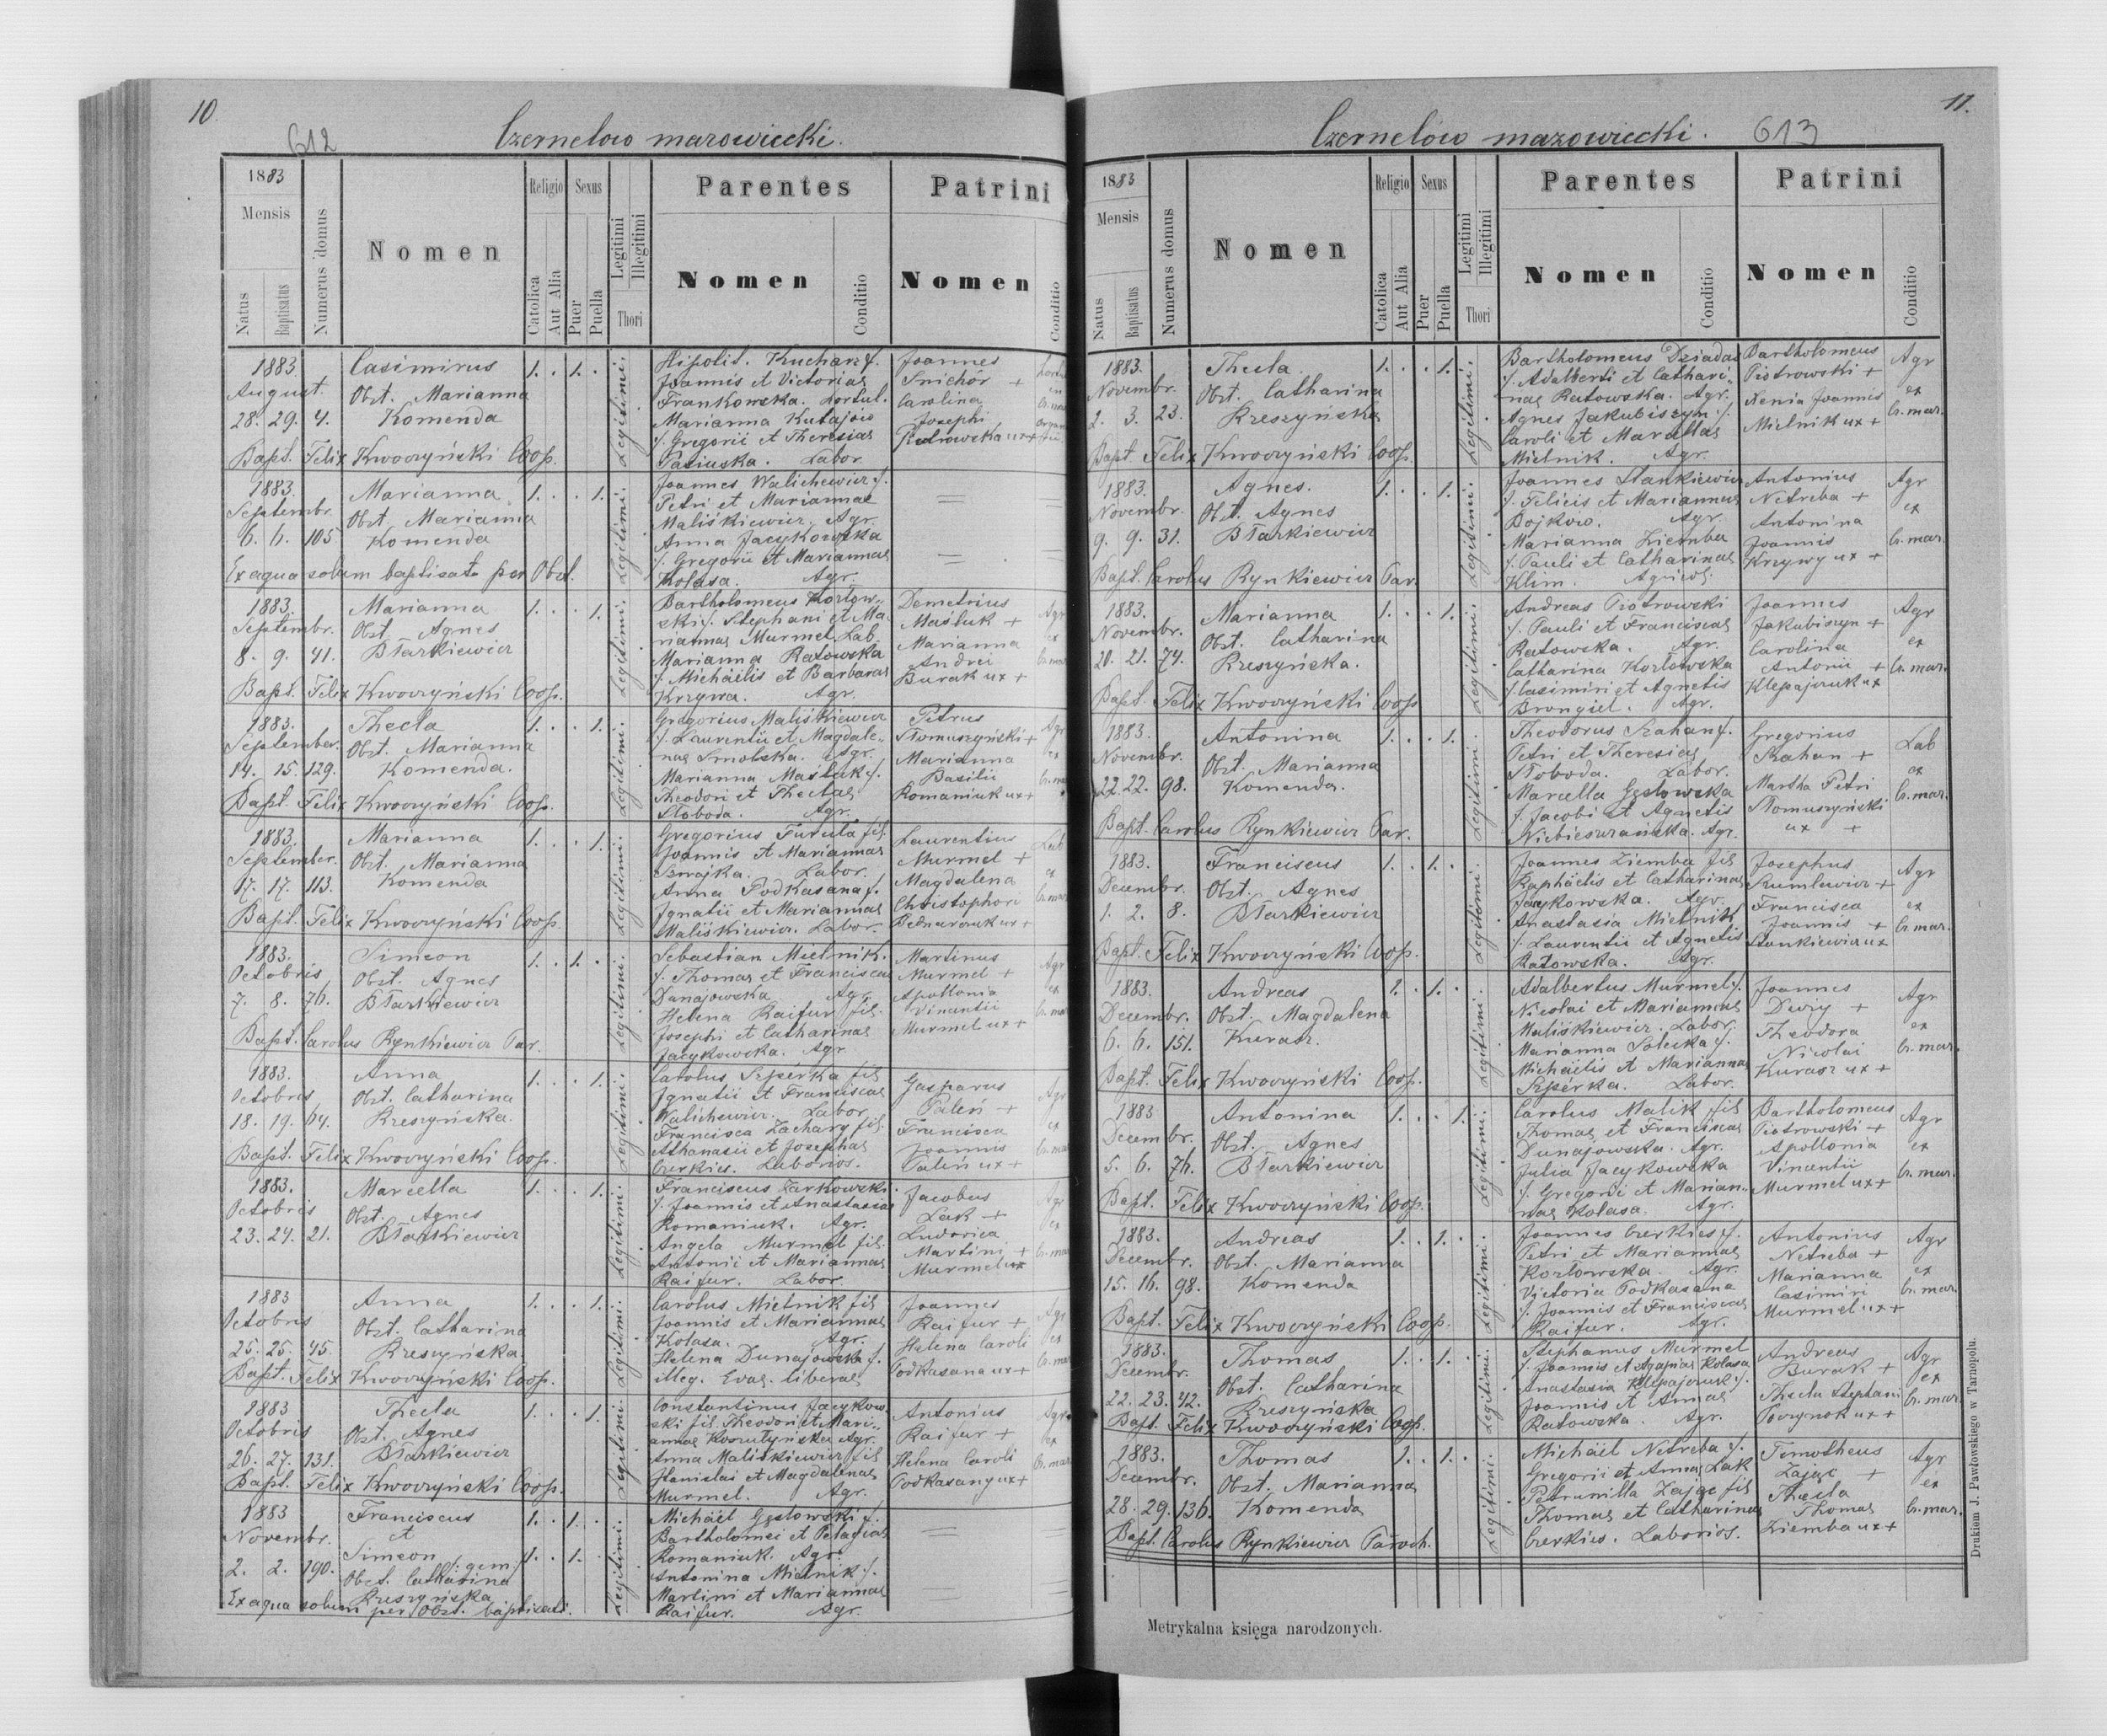 10
612
Czernelow mazowiecki.
1883
Mensis
Natus
Baptisatus
Numerus domus
Nomen
Religio
Catolica
Aut Alia
Sexus
Puer
Puella
Legitimi
Illegitimi
Thori
Parentes
Nomen
Conditio
Patrini
Nomen
Conditio
1883.
August.
28. 29. 4.
Casimirus
Obst. Marianna
Komenda
1. . 1. .
Legitimi.
Hipolit. Kucharz f.
Joannis et Victoriae
Frankowska.
Marianna
f. Gregorii et Theresiae
Labor
Joannes
Snichór +
Carolina
Josephi
Piotrowska ux +
Bapt. Felix Kwoczyński Coop.
1883.
Septembr.
6. 6. 105
Marianna
Obst. Marianna
Komenda
1. . . 1.
Legitimi.
Joannes Walichewicz f.
Petri et Mariannae
Maliśkiewicz. Agr.
Anna Jacykowska
f. Gregorii et Mariannae
Kolasa. Agr.
Ex aqua solum baptisata per Obst.
1883.
Septembr.
8. 9. 41.
Marianna
Obst. Agnes
Błarkiewicz
1. . . 1.
Legitimi.
Bartholomeus Kozłow-
ski f. Stephani et Ma-
riannae Murmel. Lab.
Marianna Ratowska
f. Michäelis et Barbarae
Krzywa. Agr.
Demetrius
Masluk +
Marianna
Andrei
Burak ux +
Agr
Bapt. Felix Kwoczyński Coop.
1883.
September.
14. 15. 129.
Thecla
Obst. Marianna
Komenda.
1. . . 1.
Legitimi.
Gregorius Maliśkiewicz
f. Laurentii et Magdale-
nae Smolska. Agr.
Marianna Masluk f.
Theodori et Theclae
Słoboda. Agr.
Petrus
Słomuszyński +
Marianna
Basilii
Romaniuk ux +
Agr
Bapt. Felix Kwoczyński Coop.
1883.
September.
17. 17. 113.
Marianna
Obst. Marianna
Komenda
1. . . 1.
Legitimi.
Gregorius Furuła fil.
Joannis et Mariannae
Labor.
Anna Podkasana f.
Ignatii et Mariannae
Maliśkiewicz. Labor.
Laurentius
Murmel +
Magdalena
Christophori
Bednarczuk ux +
Lab
Bapt. Felix Kwoczyński Coop.
1883.
Octobris
7. 8. 76.
Simeon
Obst. Agnes
Błarkiewicz
1. . 1. .
Legitimi.
Sebastian Mielnik.
f. Thomae et Franciscae
Dunajowska Agr.
Helena Raifur fil.
Josephi et Catharinae
Jacykowska. Agr
Martinus
Murmel +
Apollonia
Vincentii
Murmel ux +
Agr
Bapt. Carolus Rynkiewicz Par.
1883.
Octobris
18. 19. 64.
Anna
Obst. Catharina
Rzeszyńska.
1. . . 1.
Legitimi.
Carolus Szperka fil
Ignatii et Franciscae
Walichewicz. Labor
Francisca Zachary fil.
Athanasii et Josephae
Czerkies. Laborios.
Gasparus
Paleń +
Francisca
Joannis
Paleń ux +
Agr
Bapt. Felix Kwoczyński Coop.
1883.
Octobris
23. 24. 21.
Marcella
Obst. Agnes
Błarkiewicz
1. . . 1.
Legitimi.
Franciscus Zarkowski.
f. Joannis et Anastasiae
Romaniuk. Agr.
Angela Murmel fil.
Antonii et Mariannae
Raifur. Labor.
Jacobus
Lak +
Ludovica
Martini +
Murmel ux
1883
Octobris
25. 25. 45.
Anna
Obst. Catharina
Rzeszyńska.
1. . . 1.
Legitimi.
Carolus Mielnik fil
Joannis et Mariannae
Kolasa. Agr.
Helena Dunajowska f.
illeg. Evae liberae
Joannes
Raifur +
Helena Caroli
Podkasana ux +
Bapt. Felix Kwoczyński Coop.
1883
Octobris
26. 27. 131.
Thecla
Obst. Agnes
Błarkiewicz
1. . . 1.
Legitimi.
Constantinus Jacykow-
ski fil. Theodori et Mari-
annae Agr.
Anna Maliśkiewicz fil
Stanislai et Magdalenae
Murmel. Agr.
Antonius
Raifur +
Helena Caroli
Podkasany ux +
Agr.
Bapt. Felix Kwoczyński Coop.
1883
Novembr.
2. 2. 190.
Franciscus
et
Simeon gem.
Obst. Catharina
Rzeszyńska
1. . 1. .
1. . 1. .
Legitimi.
Michäel Gęstowski f.
Bartholomei et Pelagiae
Romaniuk. Agr.
Antonina Mielnik f.
Martini et Mariannae
Raifur. Agr.
Ex aqua solum per Obst. baptisati.
11.
Czernelów mazowiecki.
613
1883
Mensis
Natus
Baptisatus
Numerus domus
Nomen
Religio
Catolica
Aut Alia
Sexus
Puer
Puella
Legitimi
Illegitimi
Thori
Parentes
Nomen
Conditio
Patrini
Nomen
Conditio
1883.
Novembr.
2. 3. 23.
Thecla.
Obst. Catharina
Rzeszyńska
1. . . 1.
Legitimi.
Bartholomeus Dziadas
f. Adalberti et Cathari-
nae Ratowska. Agr.
Agnes Jakubiszyn f.
Caroli et Marcellae
Mielnik. Agr.
Bartholomeus
Piotrowski +
Xenia Joannis
Mielnik ux +
Agr
ex
Cr. mar.
Bapt Felix Kwoczyński Coop.
1883.
Novembr.
9. 9. 31.
Agnes.
Obst. Agnes
Błarkiewicz
1. . . 1.
Legitimi.
Joannes Stankiewicz
f. Felicis et Mariannae
Bojkow. Agr.
Marianna Ziemba
f. Pauli et Catharinae
Klim. Agricol.
Antonius
Netreba +
Antonina
Joannis
Krzywy ux +
Agr
ex
Cr. mar.
Bapt. Carolus Rynkiewicz Par.
1883.
Novembr.
20. 21. 74.
Marianna
Obst. Catharina
Rzeszyńska.
1. . . 1.
Legitimi.
Andreas Piotrowski
f. Pauli et Franciscae
Ratowska. Agr.
Catharina Kozłowska
f. Casimiri et Agnetis
Brongiel. Agr.
Joannes
Jakubiszyn +
Carolina
Antonii +
Klepajczuk ux
Agr
ex
Cr. mar.
Bapt. Felix Kwoczyński Coop
1883.
Novembr.
22. 22. 98.
Antonina
Obst. Marianna
Komenda.
1. . . 1.
Legitimi.
Theodorus f.
Petri et Theresiae
Słoboda. Labor.
Marcella Gęstowska
f. Jacobi et Agnetis
Niebieszczańska. Agr.
Gregorius
Rahan +
Martha Petri
Słomuszyński
ux +
Lab
ex
Cr. mar.
Bapt. Carolus Rynkiewicz Par.
1883.
Decembr.
1. 2. 8.
Franciscus
Obst. Agnes
Błarkiewicz
1. . 1. .
Legitimi.
Joannes Ziemba fil
Raphäelis et Catharinae
Jacykowska. Agr.
Anastasia Mielnik
f. Laurentii et Agnetis
Ratowska. Agr.
Josephus
Szumlewicz +
Francisca
Joannis +
Stankiewicz ux
Agr
ex
Cr. mar.
Bapt. Felix Kwoczyński Coop.
1883.
Decembr.
6. 6. 151.
Andreas
Obst. Magdalena
Kurasz.
1. . 1. .
Legitimi.
Adalbertus Murmel f.
Nicolai et Mariannae
Maliśkiewicz. Labor.
Marianna Solecka f.
Michäelis et Mariannae
Szpérka. Labor.
Joannes
Dwig +
Theodora
Nicolai
Kurasz ux +
Agr
ex
Cr. mar.
Bapt. Felix Kwoczyński Coop.
1883
Decembr.
5. 6. 76.
Antonina
Obst. Agnes
Błarkiewicz
1. . . 1.
Legitimi.
Carolus Malik fil
Thomae et Franciscae
Dunajowska. Agr.
Julia Jacykowska
f. Gregorii et Marian-
nae Kolasa. Agr.
Bartholomeus
Piotrowski +
Apollonia
Vincentii
Murmel ux +
Agr
ex
Cr. mar.
Bapt. Felix Kwoczyński Coop.
1883.
Decembr.
15. 16. 98.
Andreas
Obst. Marianna
Komenda
1. . 1. .
Legitimi.
Joannes Czerkies f.
Petri et Mariannae
Kozłowska. Agr.
Victoria Podkasana
f. Joannis et Franciscae
Raifur. Agr.
Antonius
Netreba +
Marianna
Casimiri
Murmel ux +
Agr
ex
Cr. mar.
Bapt. Felix Kwoczyński Coop.
1883.
Decembr.
22. 23. 42.
Thomas
Obst. Catharina
Rzeszyńska
1. . 1. .
Legitimi.
Stephanus Murmel
f. Joannis et Agapiae Kolasa
Anastasia Klepajczuk f.
Joannis et Annae
Ratowska. Agr.
Andreas
Burak +
Thecla Stephani
Poczynok ux +
Agr
ex
Cr. mar.
Bapt. Felix Kwoczyński Coop.
1883.
Decembr.
28. 29. 136.
Thomas
Obst. Marianna
Komenda
1. . 1. .
Legitimi.
Michäel Netreba f.
Gregorii et Annae Lak
Petrunilla Zając fil
Thomae et Catharinae
Czerkies. Laborios.
Timotheus
Zając +
Thecla
Thomae
Ziemba ux +
Agr
ex
Cr. mar.
Bapt. Carolus Rynkiewicz Paroch.
Metrykalna księga narodzonych.
Drukiem J. Pawłowskiego w Tarnopolu.